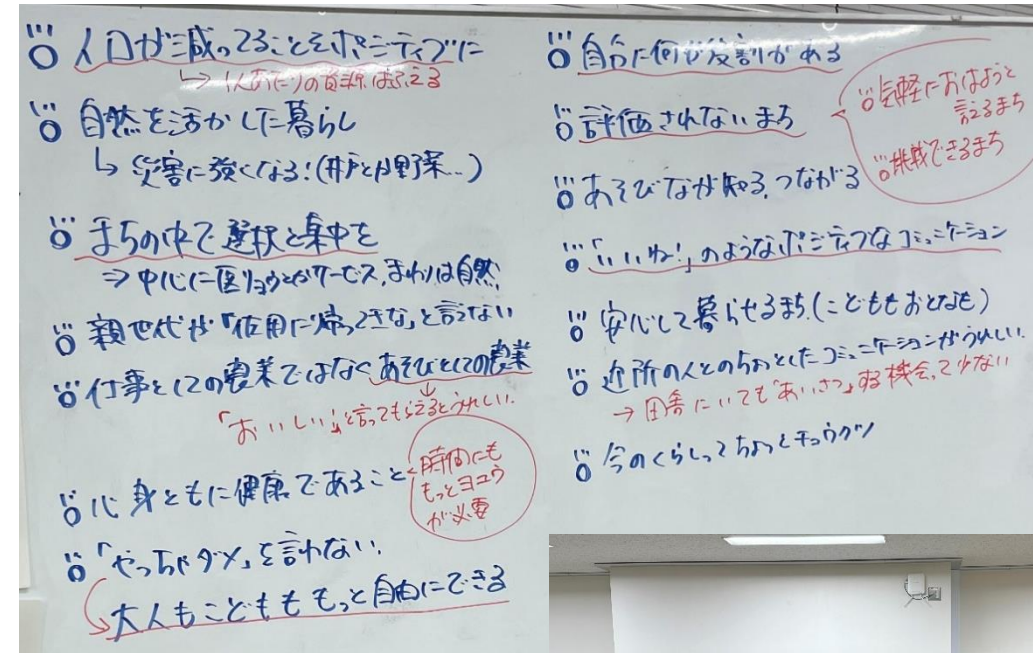 人口が減ってることをポジティブに
↳ 1人あたりの資源はふえる
自然を活かした暮らし
↳ 災害に強くなる！(井戸とか野菜…)
まちの中で選択と集中を
⇒ 中心に医リョウとかサービス、まわりは自然
親世代が「佐用に帰ってきな」と言わない
仕事としての農業ではなくあそびとしての農業
「おいしい」と言ってもらえるとうれしい。
心身ともに健康であること
時間にも
もっとヨユウ
が必要
「やっちゃダメ」を言わない
大人もこどもももっと自由にできる
自分に何か役割がある
評価されないまち
気軽におはようと
言えるまち
挑戦できるまち
あそびながら知る、つながる
「いいね！」のようなポジティブなコミュニケーション
安心して暮らせるまち(こどももおとなも)
近所の人とのちょっとしたコミュニケーションがうれしい
→ 田舎にいても「あいさつ」する機会って少ない
今のくらしってちょっとキュウクツ